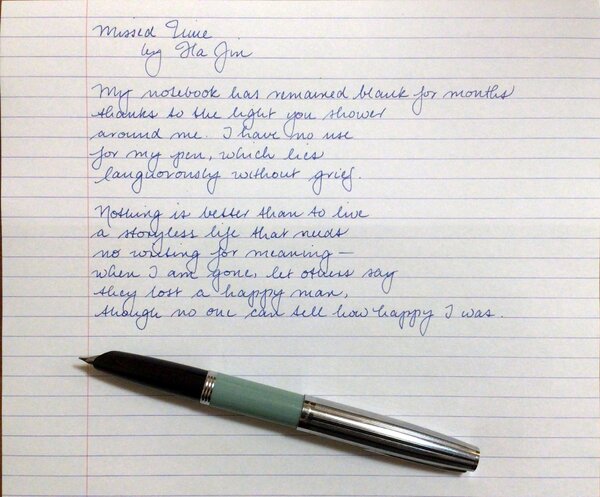 Missed Time
by Ha Jin
My notebook has remained blank for months
thanks to the light you shower
around me. I have no use
for my pen, which lies
languorously without grief.
Nothing is better than to live
a storyless life that needs
no writing for meaning—
when I am gone, let others say
they lost a happy man,
though no one can tell how happy I was.